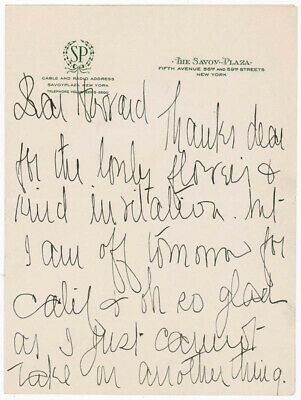 SP
CABLE AND RADIO ADDRESS
SAVOYPLAZA NEW YORK
TELEPHONE
THE SAVOY-PLAZA
FIFTH AVENUE 58TH AND 59TH STREETS
NEW YORK
Dear Howard Thanks dear
for the lovely flowers &
kind invitation. but
I am off tomorrow for
Calif & oh so glad
as I just cannot
take on another thing.